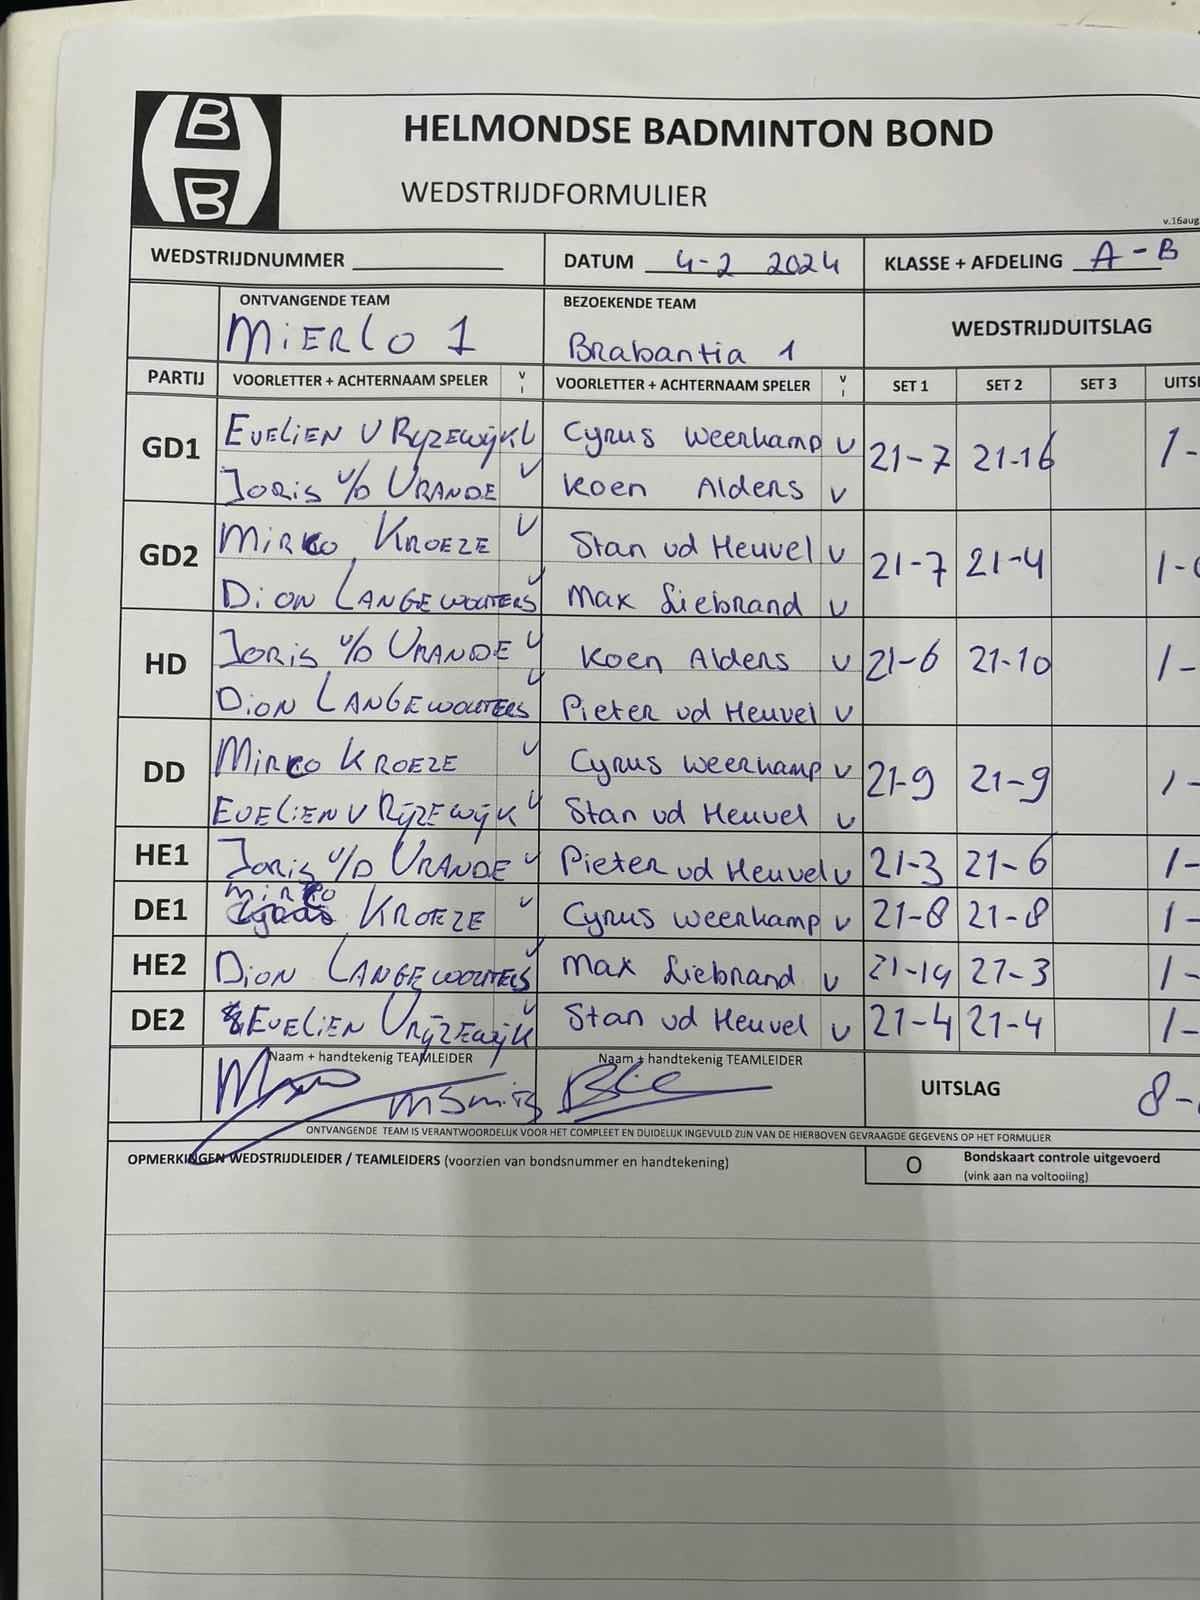 B
B
HELMONDSE BADMINTON BOND
WEDSTRIJDFORMULIER
v.16aug
WEDSTRIJDNUMMER DATUM 4-2 2024 KLASSE + AFDELING A-B
ONTVANGENDE TEAM BEZOEKENDE TEAM WEDSTRIJDUITSLAG
MiERLO 1 Brabantia 1
PARTIJ VOORLETTER + ACHTERNAAM SPELER V I VOORLETTER + ACHTERNAAM SPELER V I SET 1 SET 2 SET 3 UITSL
GD1 EVELIEN V RIJZEWIJK V Cyrus Weerkamp v 21-7 21-16 1-
JORIS v/D VRANDE V Koen Alders v
GD2 MIRKO KROEZE V Stan vd Heuvel v 21-7 21-4 1-0
DION LANGEWOUTERS V Max Liebrand v
HD JORIS v/D VRANDE V Koen Alders v 21-6 21-10 1-
DION LANGEWOUTERS V Pieter vd Heuvel v
DD MIRKO KROEZE V Cyrus Weerkamp v 21-9 21-9 1-
EVELIEN V RIJZEWIJK V Stan vd Heuvel v
HE1 JORIS v/D VRANDE V Pieter vd Heuvel v 21-3 21-6 1-
DE1 MIRKO KROEZE V Cyrus Weerkamp v 21-8 21-8 1-
HE2 DION LANGEWOUTERS V Max Liebrand v 21-19 21-3 1-
DE2 EVELIEN VRIJZEWIJK V Stan vd Heuvel v 21-4 21-4 1-
Naam + handtekenig TEAMLEIDER Naam + handtekenig TEAMLEIDER UITSLAG 8-
ONTVANGENDE TEAM IS VERANTWOORDELIJK VOOR HET COMPLEET EN DUIDELIJK INGEVULD ZIJN VAN DE HIERBOVEN GEVRAAGDE GEGEVENS OP HET FORMULIER
OPMERKINGEN WEDSTRIJDLEIDER / TEAMLEIDERS (voorzien van bondsnummer en handtekening) O Bondskaart controle uitgevoerd
(vink aan na voltooiing)